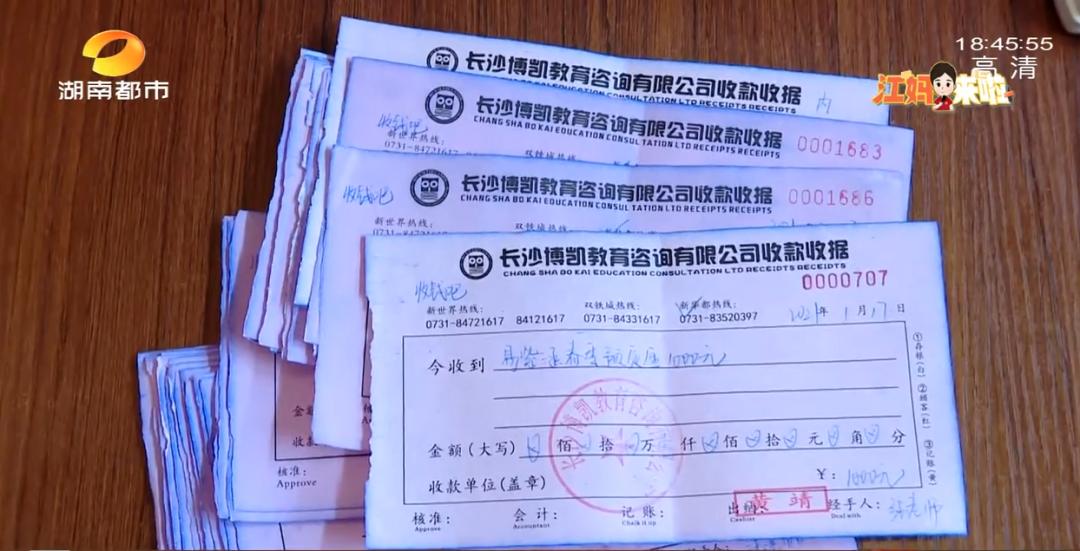 湖南都市
18:45:55
高清
江妈来啦
长沙博凯教育咨询有限公司收款收据
内
收钱吧
长沙博凯教育咨询有限公司收款收据
CHANG SHA BO KAI EDUCATION CONSULTATION LTD RECEIPTS RECEIPTS
0001683
新世界热线:
0731-84721617
双铁城热线:
收钱吧
长沙博凯教育咨询有限公司收款收据
CHANG SHA BO KAI EDUCATION CONSULTATION LTD RECEIPTS RECEIPTS
0001686
新世界热线:
双铁城热线:
长沙博凯教育咨询有限公司收款收据
CHANG SHA BO KAI EDUCATION CONSULTATION LTD RECEIPTS RECEIPTS
0000707
收钱吧
新世界热线: 双铁城热线: 新华都热线:
0731-84721617 84121617 0731-84331617 0731-83520397
2021年1月17日
今收到 1000元
金额(大写) 佰 拾 万 仟 佰 拾 元 角 分
收款单位(盖章)
¥: 1000元
核准: 会计: 记账: 出纳: 黄靖 经手人:
Approve Accountant Chalk it up Cashier Deal with
①存根(白) ②顾客(红) ③记账(黄)
核准:
Approve